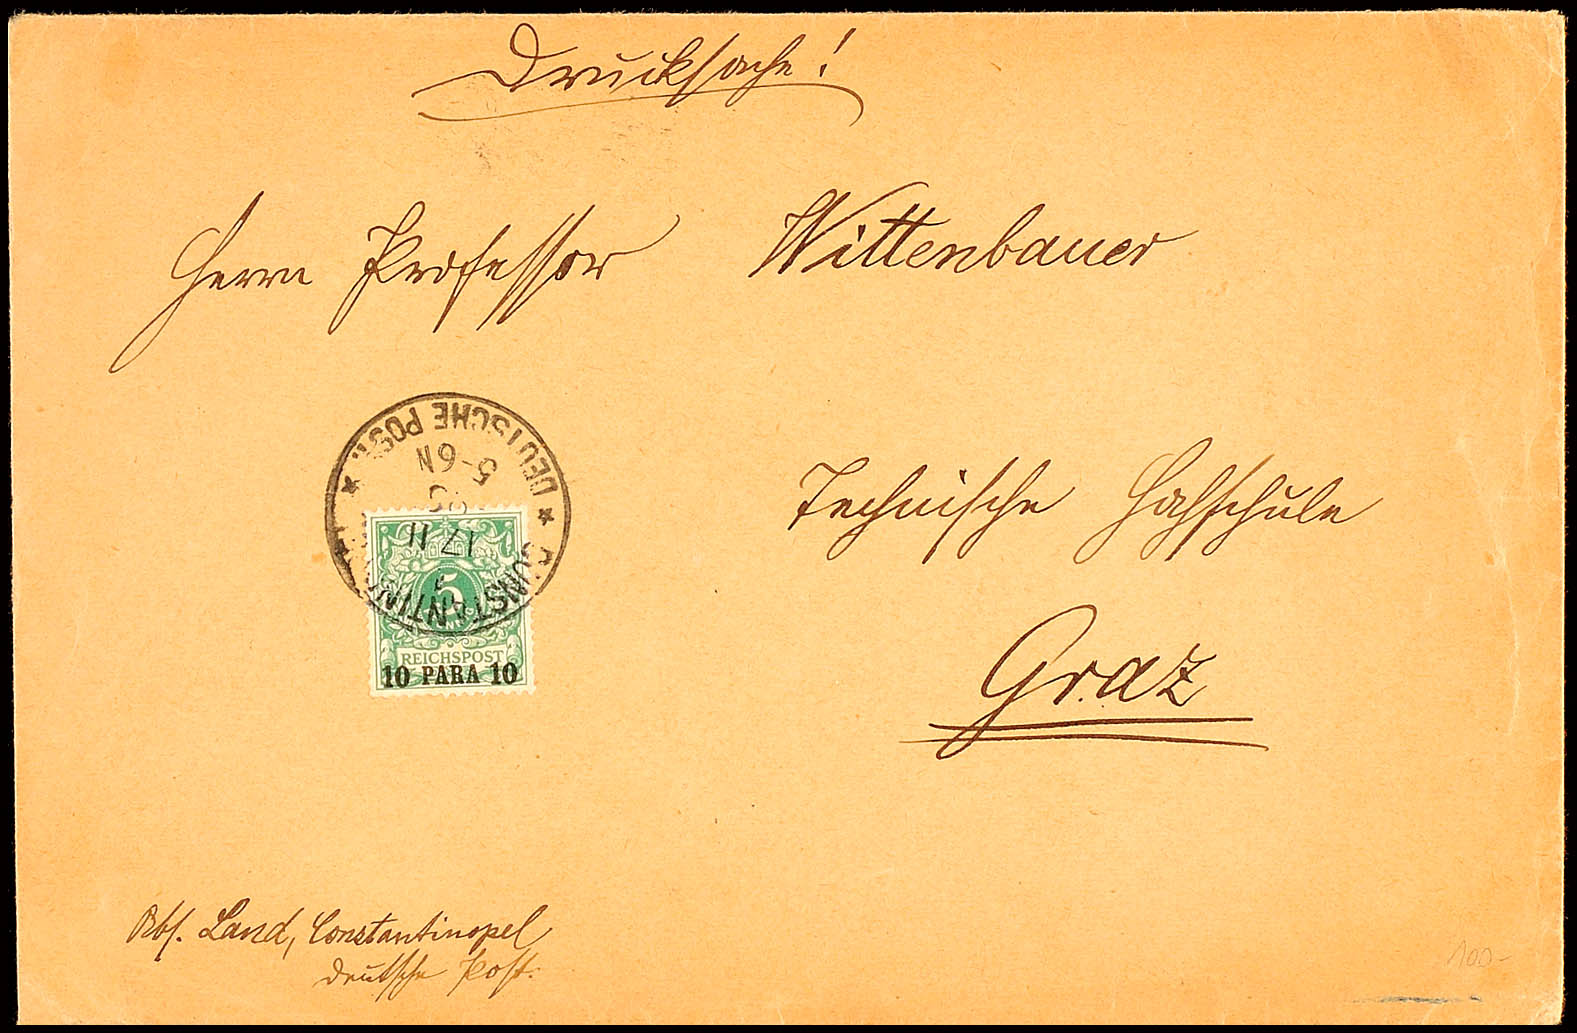 Drucksache!
Herrn Professor Wittenbauer
Technische Hochschule
Graz
DEUTSCHE POST.
5-6N
17 11
5
REICHSPOST
10 PARA 10
Abs. Land, Constantinopel
deutsche Post.
100-